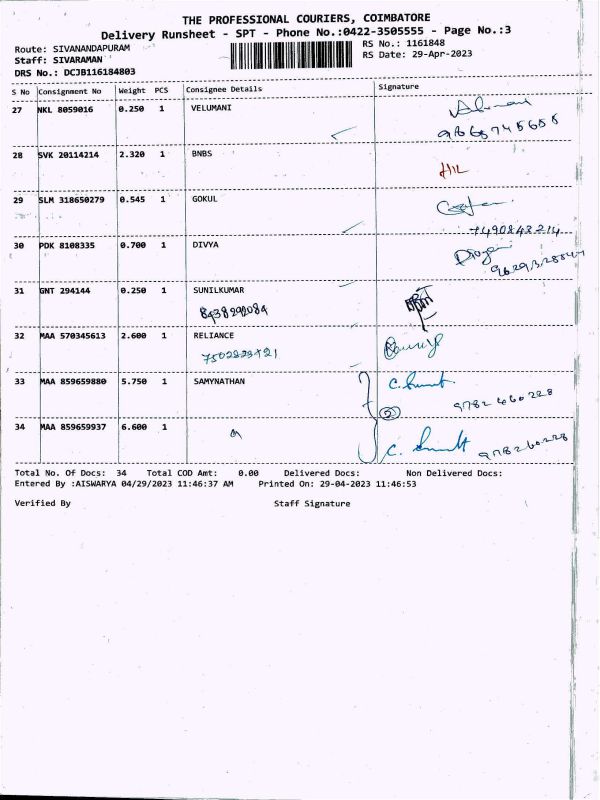 THE PROFESSIONAL COURIERS, COIMBATORE
Delivery Runsheet - SPT - Phone No.:0422-3505555 - Page No.:3
Route: SIVANANDAPURAM RS No.: 1161848
Staff: SIVARAMAN RS Date: 29-Apr-2023
DRS No.: DCJB116184803
S No Consignment No Weight PCS Consignee Details Signature
27 NKL 8059016 0.250 1 VELUMANI
28 SVK 20114214 2.320 1 BNBS
29 SLM 318650279 0.545 1 GOKUL
7490843214
30 PDK 8108335 0.700 1 DIVYA
31 GNT 294144 0.250 1 SUNILKUMAR
32 MAA 570345613 2.600 1 RELIANCE
33 MAA 859659880 5.750 1 SAMYNATHAN
9782460228
2
34 MAA 859659937 6.600 1
Total No. Of Docs: 34 Total COD Amt: 0.00 Delivered Docs: Non Delivered Docs:
Entered By :AISWARYA 04/29/2023 11:46:37 AM Printed On: 29-04-2023 11:46:53
Verified By Staff Signature